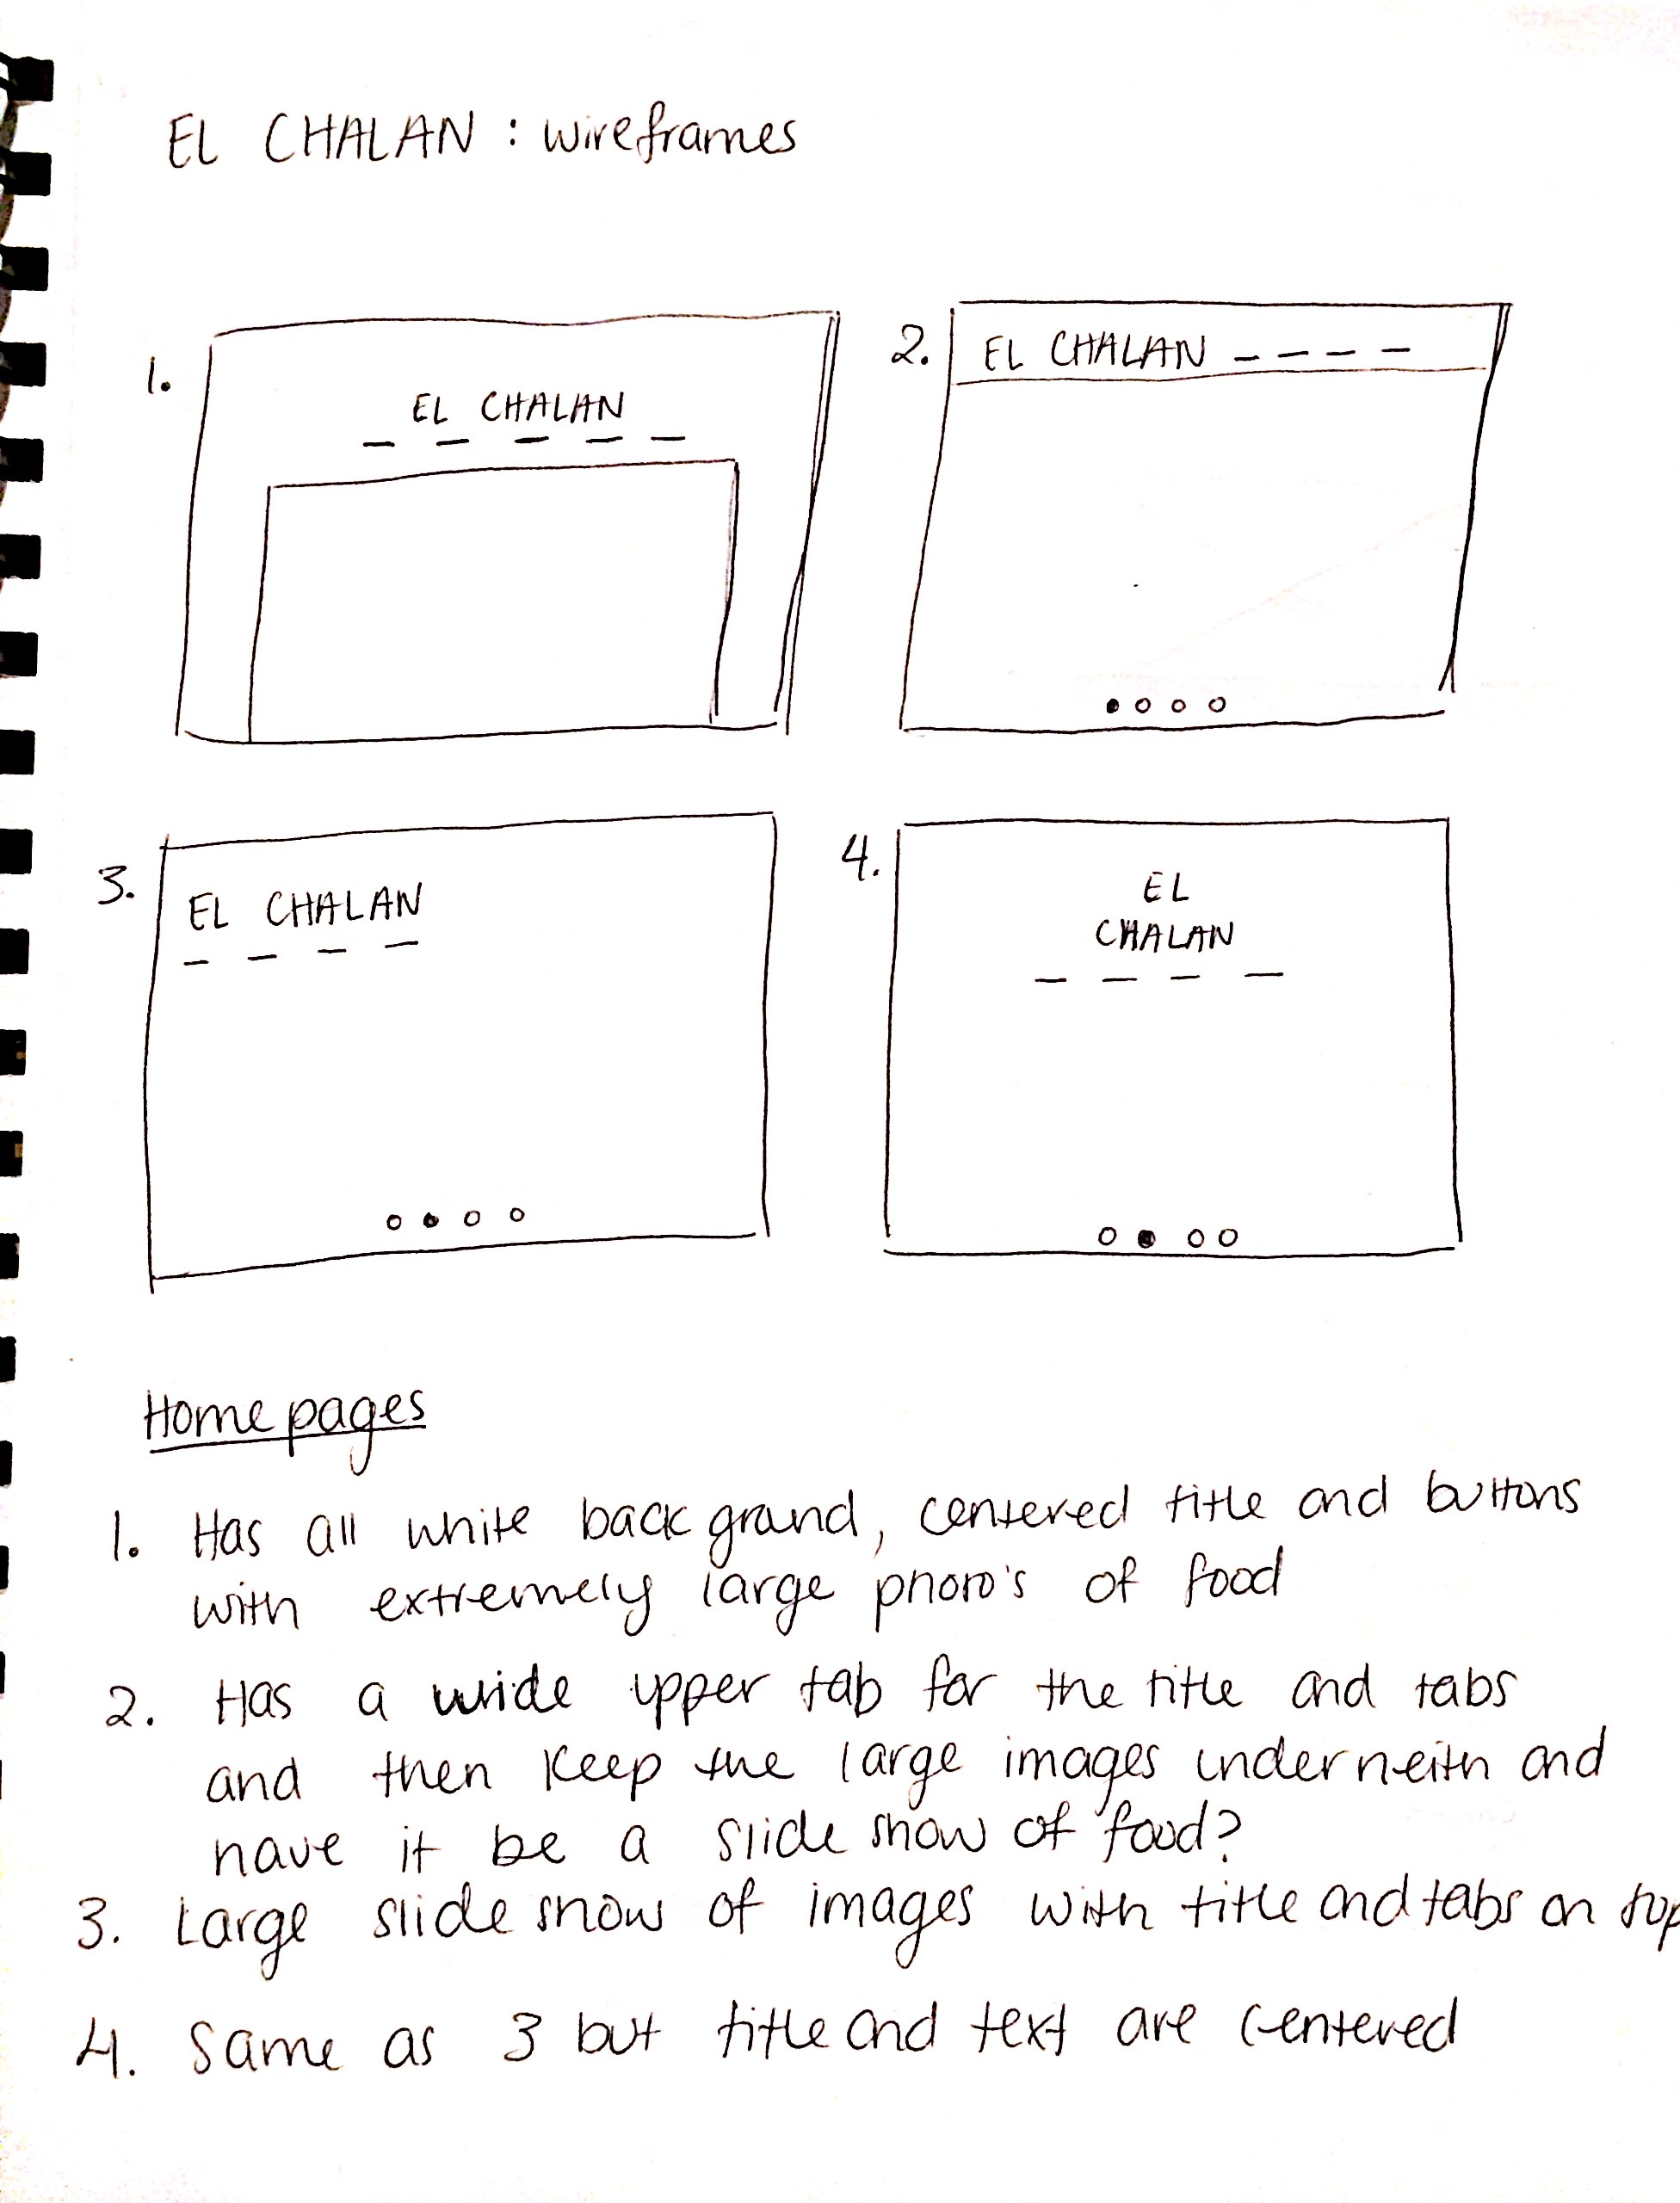 EL CHALAN : wireframes
1.
EL CHALAN
2.
EL CHALAN
3.
EL CHALAN
4.
EL
CHALAN
Home pages
1. Has all white back grand, centered title and buttons
with extremely large photo's of food
2. Has a wide upper tab for the title and tabs
and then keep the large images underneith and
have it be a slide show of food?
3. Large slide show of images with title and tabs on top
4. Same as 3 but title and text are centered